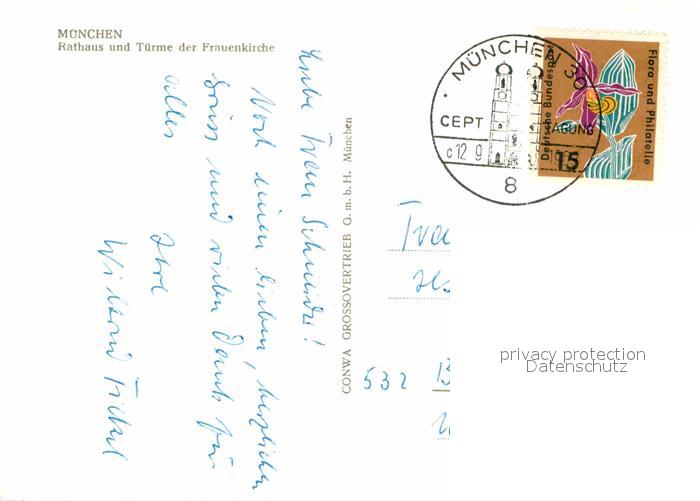 MÜNCHEN
Rathaus und Türme der Frauenkirche
Liebe Frau Schneider!
Noch einen lieben, herzlichen
Gruss und vielen Dank für
alles
Ihre
CONWA GROSSOVERTRIEB G.m.b.H. München
MÜNCHEN
CEPT TAGUNG
c12 9
8
Deutsche Bundespost
Flora und Philatelie
15
Frau
532
privacy protection
Datenschutz